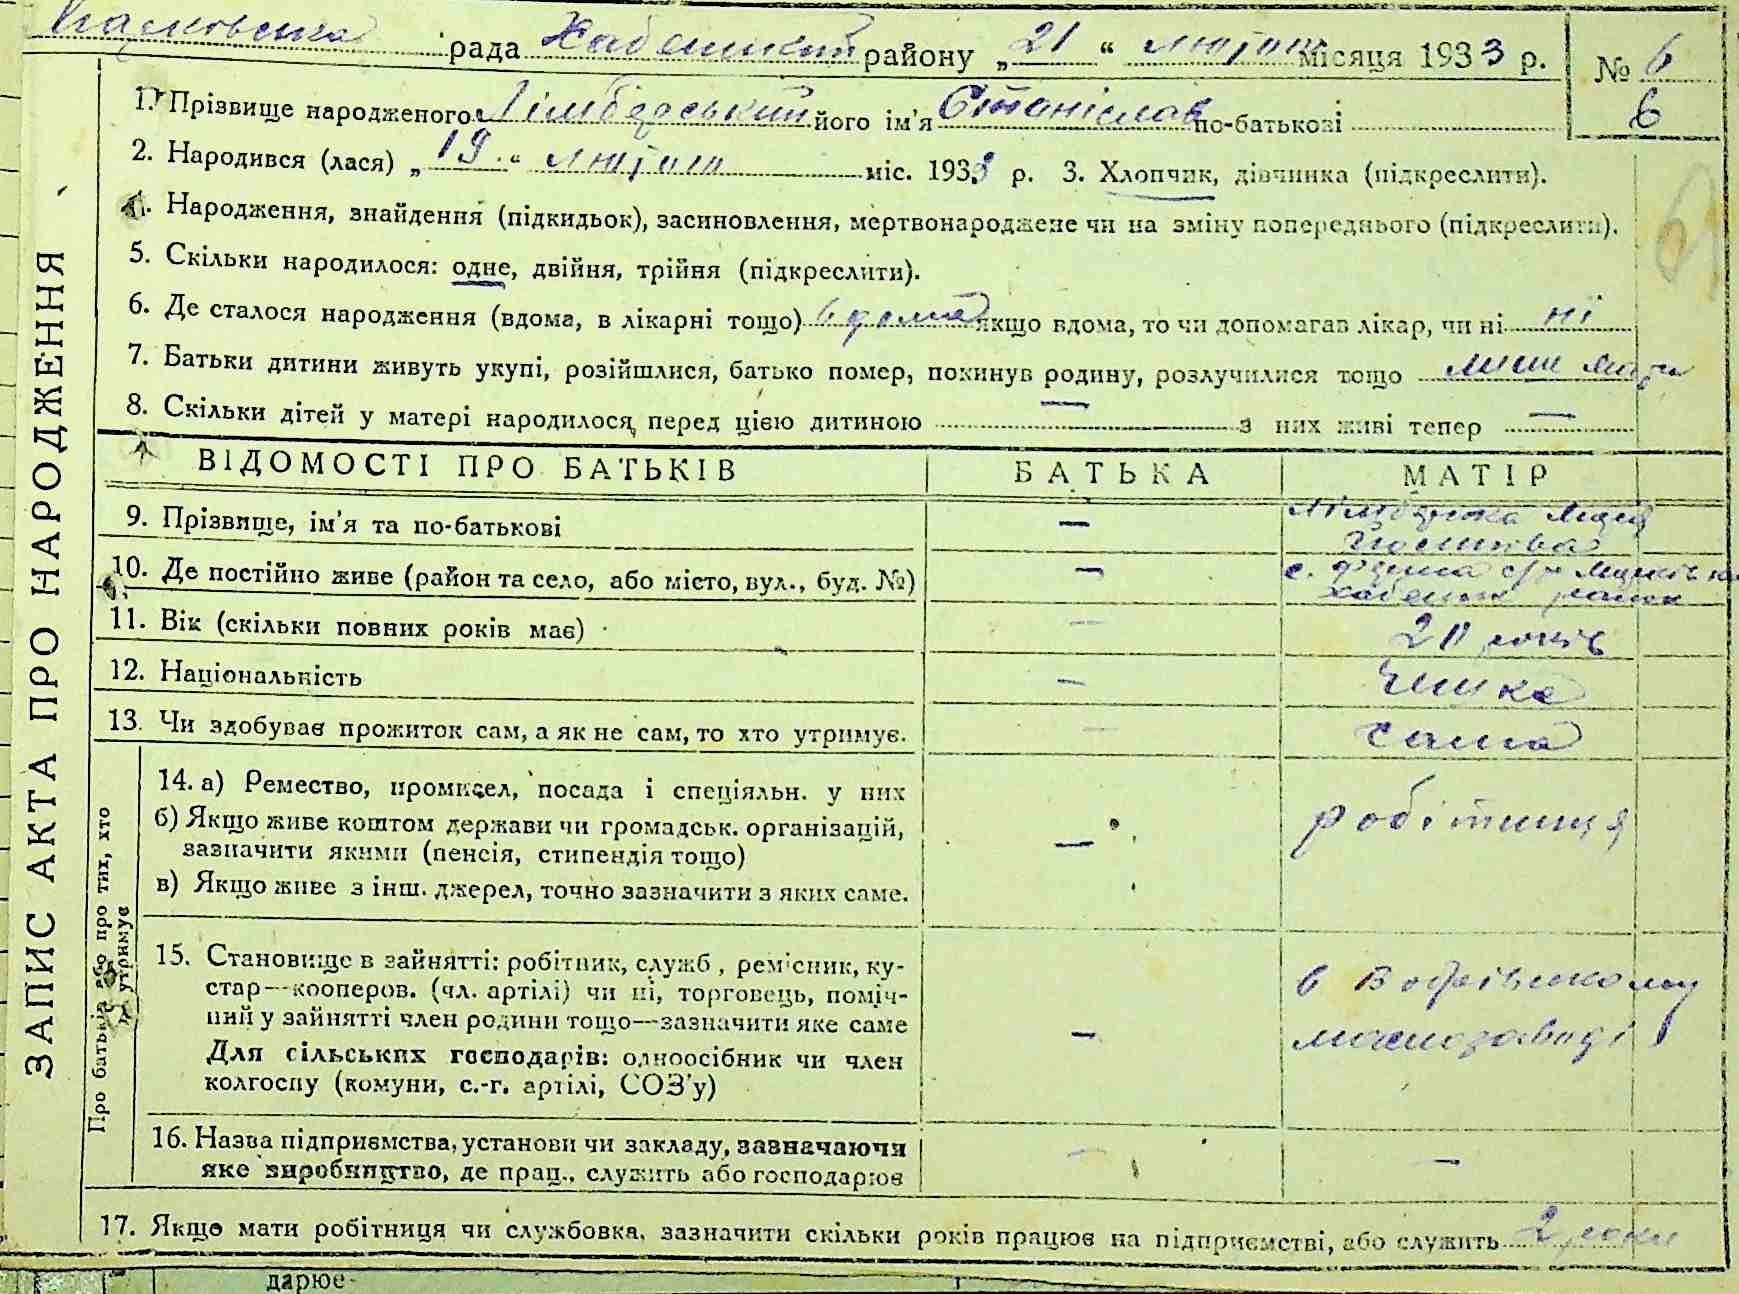 рада Хабенський району „ 21 “ лютого місяця 1933 р. № 6
6
1. Прізвище народженого Лімберський його ім'я Станіслав по-батькові
2. Народився (лася) „ 19 “ лютого міс. 1933 р. 3. Хлопчик, дівчинка (підкреслити).
4. Народження, знайдення (підкидьок), засиновлення, мертвонароджене чи на зміну попереднього (підкреслити).
5. Скільки народилося: одне, двійня, трійня (підкреслити).
6. Де сталося народження (вдома, в лікарні тощо) вдома якщо вдома, то чи допомагав лікар, чи ні ні
7. Батьки дитини живуть укупі, розійшлися, батько помер, покинув родину, розлучилися тощо лише мати
8. Скільки дітей у матері народилося перед цією дитиною — з них живі тепер —
ВІДОМОСТІ ПРО БАТЬКІВ БАТЬКА МАТІР
9. Прізвище, ім'я та по-батькові —
10. Де постійно живе (район та село, або місто, вул., буд. №) — с.
11. Вік (скільки повних років має) — 20 років
12. Національність — Чешка
13. Чи здобуває прожиток сам, а як не сам, то хто утримує. — сама
14. а) Ремество, промисел, посада і спеціяльн. у них
б) Якщо живе коштом держави чи громадськ. організацій,
зазначити якими (пенсія, стипендія тощо) — робітниця
в) Якщо живе з інш. джерел, точно зазначити з яких саме.
15. Становище в зайнятті: робітник, служб, ремісник, ку-
стар—кооперов. (чл. артілі) чи ні, торговець, поміч-
ний у зайнятті член родини тощо—зазначити яке саме — в
Для сільських господарів: одноосібник чи член
колгоспу (комуни, с.-г. артілі, СОЗ'у)
16. Назва підприємства, установи чи закладу, зазначаючи
яке виробництво, де прац., служить або господарює — —
17. Якщо мати робітниця чи службовка, зазначити скільки років працює на підприємстві, або служить 2 роки
дарює
ЗАПИС АКТА ПРО НАРОДЖЕННЯ
Про батьків або про тих, хто
утримує